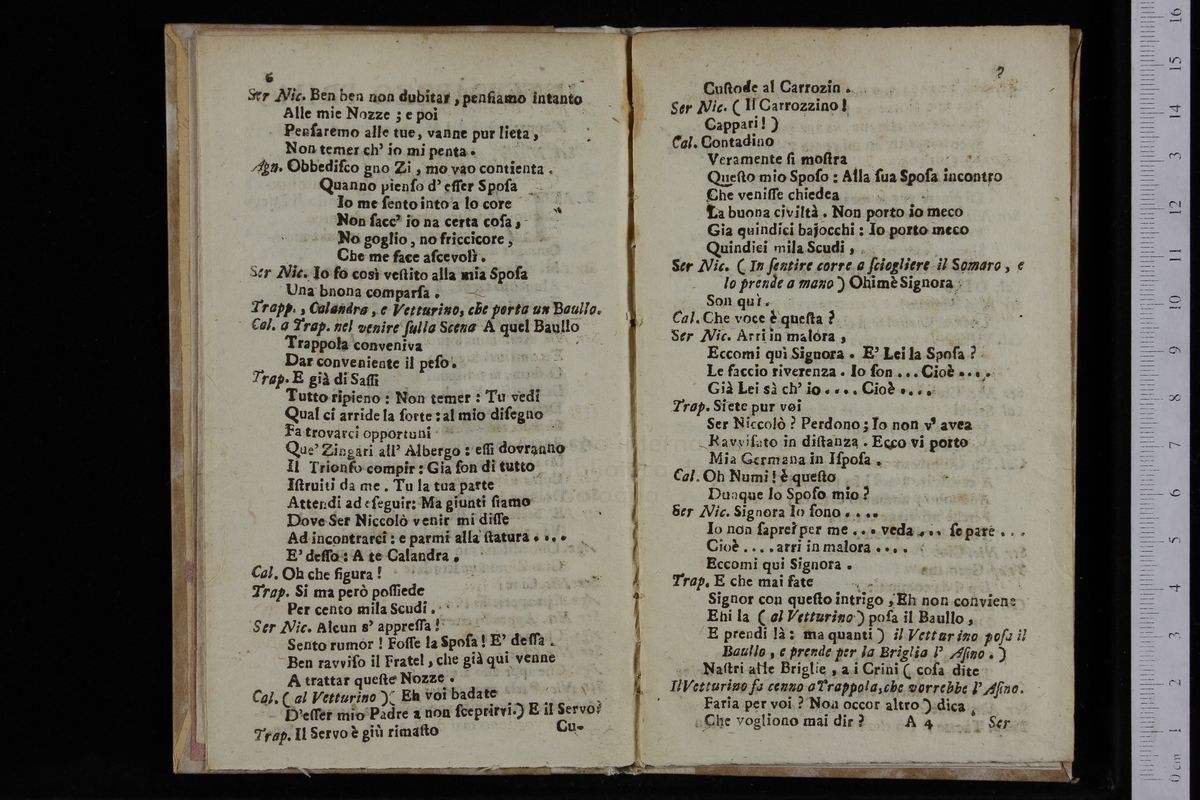 6
Ser Nic. Ben ben non dubitar, pensiamo intanto
Alle mie Nozze; e poi
Pensaremo alle tue, vanne pur lieta,
Non temer ch' io mi penta.
Agn. Obbedisco gno Zi, mo vao contienta.
Quanno pienso d' esser Sposa
Io me sento into a lo core
Non sacc' io na certa cosa,
No goglio, no friccicore,
Che me face ascevolì.
Ser Nic. Io fo così vestito alla mia Sposa
Una bnona comparsa.
Trapp., Calandra, e Vetturino, che porta un Baullo.
Cal. a Trap. nel venire sulla Scena A quel Baullo
Trappola conveniva
Dar conveniente il peso.
Trap. E già di Sassi
Tutto ripieno: Non temer: Tu vedi
Qual ci arride la sorte: al mio disegno
Fa trovarci opportuni
Que' Zingari all' Albergo: essi dovranno
Il Trionfo compir: Gia son di tutto
Istruiti da me. Tu la tua parte
Attendi ad eseguir: Ma giunti siamo
Dove Ser Niccolò venir mi disse
Ad incontrarci: e parmi alla statura....
E' desso: A te Calandra.
Cal. Oh che figura!
Trap. Si ma però possiede
Per cento mila Scudi.
Ser Nic. Alcun s' appressa!
Sento rumor! Fosse la Sposa! E' dessa.
Ben ravviso il Fratel, che già qui venne
A trattar queste Nozze.
Cal. (al Vetturino) Eh voi badate
D'esser mio Padre a non scoprirvi.) E il Servo?
Trap. Il Servo è giù rimasto
Cu-
7
Custode al Carrozin.
Ser Nic. (Il Carrozzino!
Cappari!)
Cal. Contadino
Veramente si mostra
Questo mio Sposo: Alla sua Sposa incontro
Che venisse chiedea
La buona civiltà. Non porto io meco
Gia quindici bajocchi: Io porto meco
Quindici mila Scudi,
Ser Nic. (In sentire corre a sciogliere il Somaro, e
lo prende a mano) Ohimè Signora
Son qui.
Cal. Che voce è questa?
Ser Nic. Arri in malora,
Eccomi quì Signora. E' Lei la Sposa?
Le faccio riverenza. Io son... Cioè....
Già Lei sà ch' io.... Cioè....
Trap. Siete pur voi
Ser Niccolò? Perdono; Io non v' avea
Ravvisato in distanza. Ecco vi porto
Mia Germana in Isposa.
Cal. Oh Numi! è questo
Dunque lo Sposo mio?
Ser Nic. Signora Io sono....
Io non saprei per me... veda... se pare...
Cioè.... arri in malora....
Eccomi qui Signora.
Trap. E che mai fate
Signor con questo intrigo, Eh non conviene
Ehi la (al Vetturino) posa il Baullo,
E prendi là: ma quanti) il Vetturino posa il
Baullo, e prende per la Briglia l' Asino.)
Nastri alle Briglie, a i Crini (cosa dite
Il Vetturino fa cenno a Trappola, che vorrebbe l'Asino.
Faria per voi? Non occor altro) dica,
Che vogliono mai dir? A 4 Ser